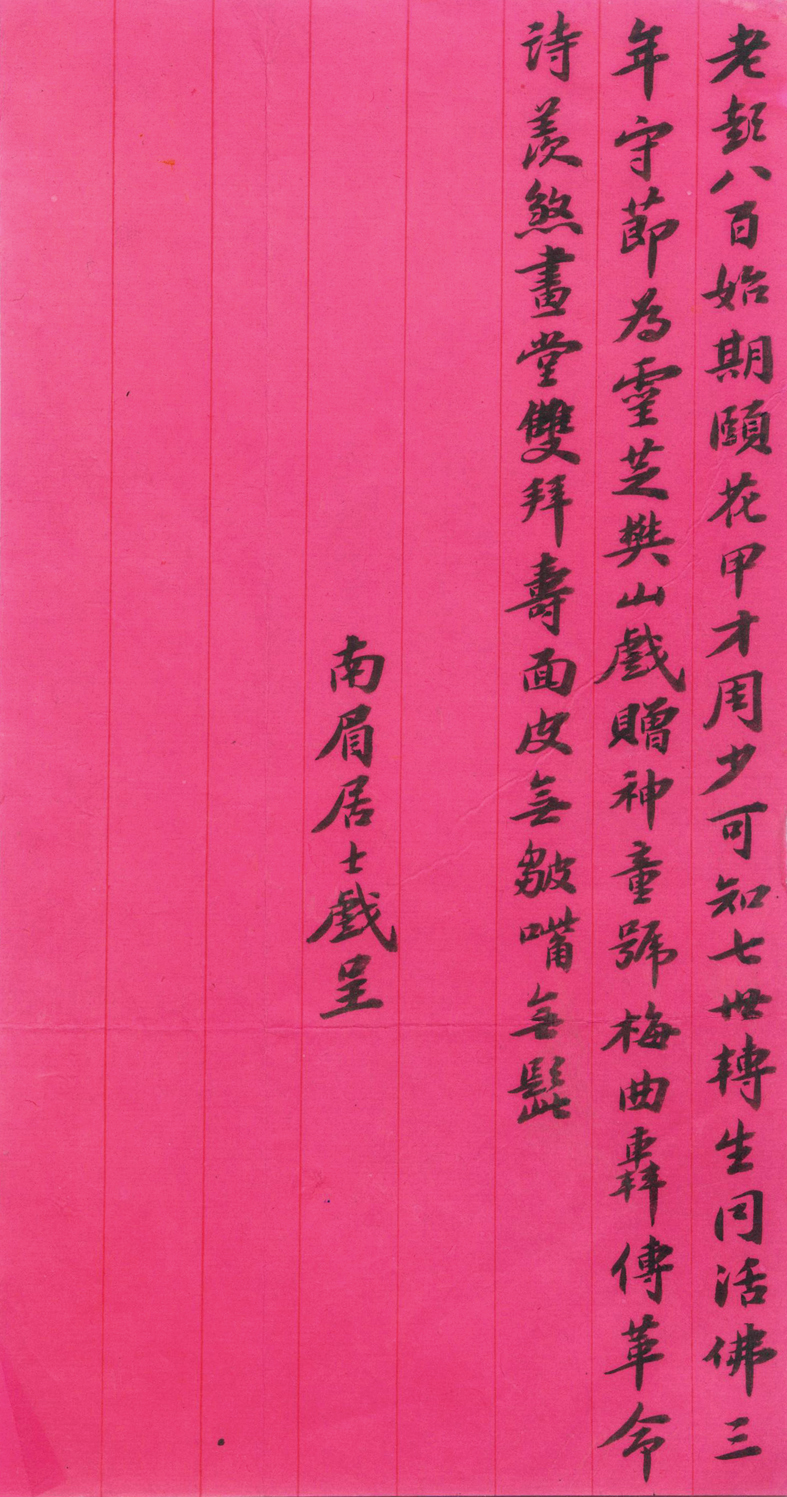 老彭八百始期頤花甲才周少可知七世轉生同活佛三
年守節為靈芝樊山戲贈神童號梅曲轟傳革命
詩羨煞畫堂雙拜壽面皮無皺嘴無髭
南眉居士戲呈